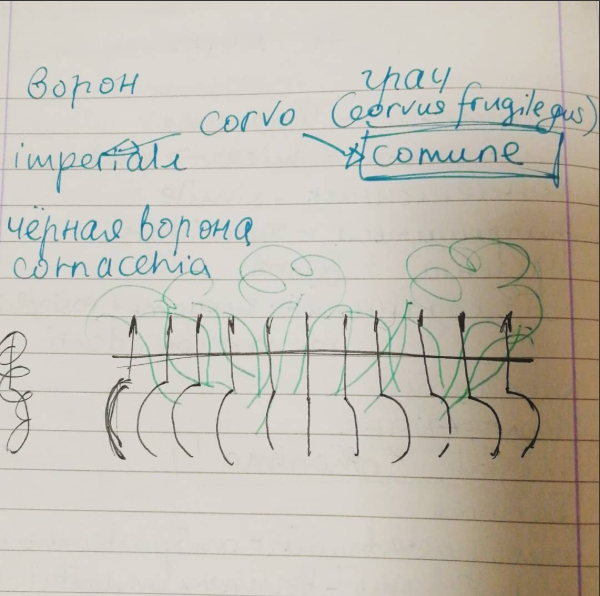 ворон
грач
corvo (corvus frugilegus)
imperiale comune
чёрная ворона
cornacchia